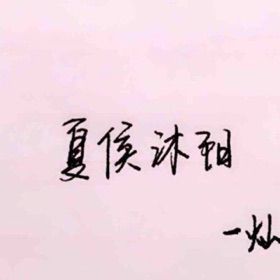 夏侯沐阳
一灿